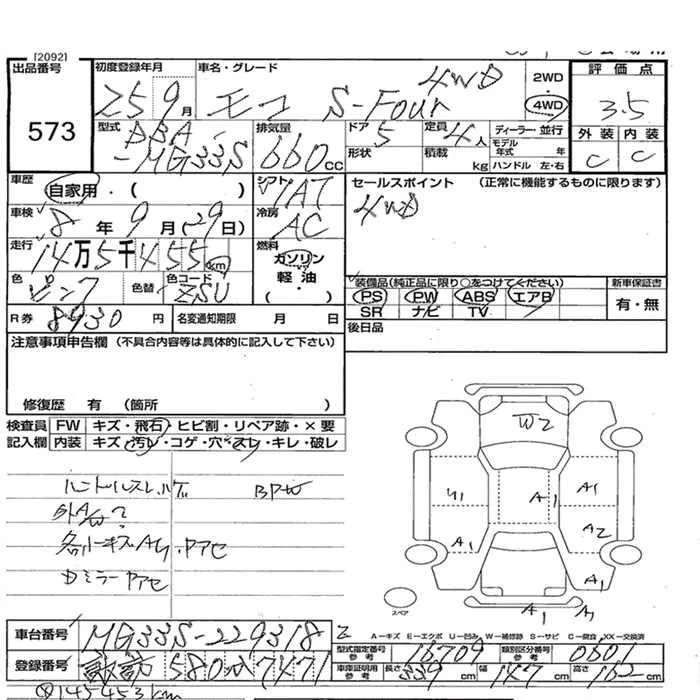 [2092]
出品番号 573
初度登録年月 25 9月
車名・グレード モコ S-Four 4WD
2WD・4WD
評価点 3.5
外装 C 内装 C
型式 DBA-MG33S
排気量 660cc
ドア 5 形状
定員 4人 積載 kg
ディーラー・並行
モデル年式 年
ハンドル 左・右
車歴 自家用・( )
シフト IAT
セールスポイント (正常に機能するものに限ります)
4WD
車検 8年9月(29日)
冷房 AC
走行 14万5千455km
燃料 ガソリン 軽油・( )
色 ピンク 色替 色コード ZSU
装備品(純正品に限り○をつけてください)
PS PW ABS エアB
SR ナビ TV
新車保証書 有・無
R券 8930円
名変通知期限 月 日
後日品
注意事項申告欄 (不具合内容等は具体的に記入して下さい)
修復歴 有 (箇所
検査員記入欄
FW キズ・飛石・ヒビ割・リペア跡・×要
内装 キズ・汚レ・コゲ・穴・スレ・キレ・破レ
ハンドルスレ、ハゲ
各所キズA4・ヤケセ
W2
U1
A1
A1
A1
A2
A1
A1
A1
スペア
A-キズ E-エクボ U-凹み W-補修跡 S-サビ C-腐食 XX-交換済
車台番号 MG33S-229318
登録番号 580 7471
型式指定番号参考 16709
類別区分番号参考 0601
車庫証明用参考 長さ 339cm 幅 147cm 高さ 162cm
145453km